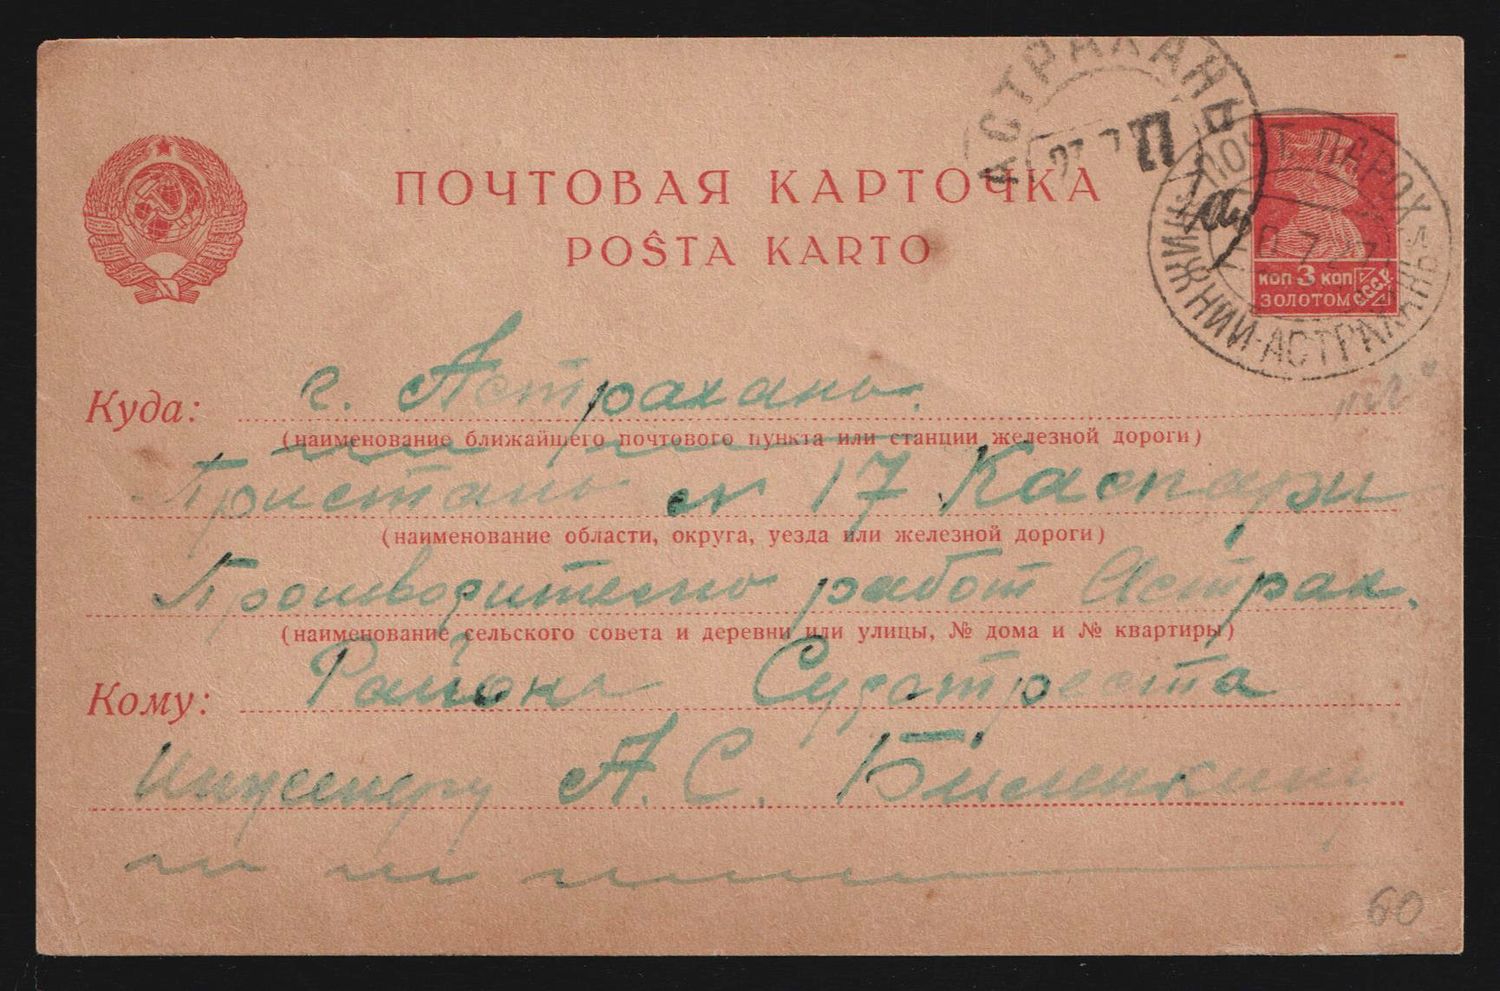 АСТРАХАНЬ
27
ПОЧТ. ПАРОХ.
НИЖНИЙ-АСТРАХАНЬ
7 27
КОП 3 КОП
ЗОЛОТОМ
С.С.С.Р.
ПОЧТОВАЯ КАРТОЧКА
POŜTA KARTO
Куда: г. Астрахань.
(наименование ближайшего почтового пункта или станции железной дороги)
Пристань № 17 Каспари
(наименование области, округа, уезда или железной дороги)
Производителю работ Астрах.
(наименование сельского совета и деревни или улицы, № дома и № квартиры)
Кому: Района Судотреста
Инженеру А. С. Биленкину
60